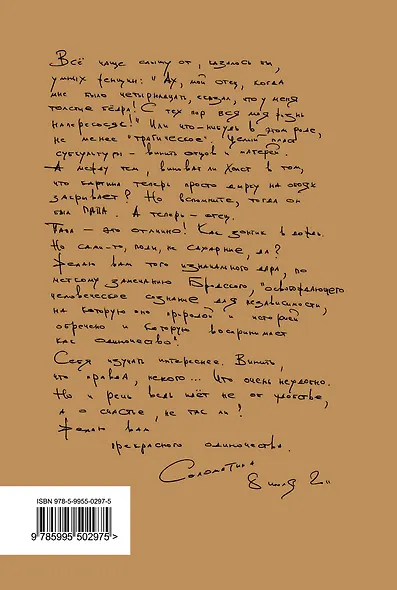 Всё чаще слышу от, казалось бы,
умных женщин: "Ах, мой отец, когда
мне было четырнадцать, сказал, что у меня
толстые бёдра! С тех пор вся моя жизнь
наперекосяк!" Или что-нибудь в этом роде,
не менее "трагическое". Целый пласт
субкультуры - винить отцов и матерей.
А между тем, виноват ли Холст в том,
что картина теперь просто дырку на обоях
закрывает? Но вспомните, тогда он
был ПАПА. А теперь - отец.
Папа - это отлично! Как зонтик в дождь.
Но сами-то, поди, не сахарные, да?
Желаю вам того изначального дара, по
меткому замечанию Бродского, "освобождающего
человеческое сознание для независимости,
на которую оно природой и историей
обречено и которую воспринимает
как одиночество".
Себя изучать интереснее. Винить,
что правда, некого... Что очень неудобно.
Но и речь ведь идёт не об удобстве,
а о счастье, не так ли?
Желаю вам
прекрасного одиночества.
Соломатина
8 июля 2011
ISBN 978-5-9955-0297-5
9 785995 502975 >